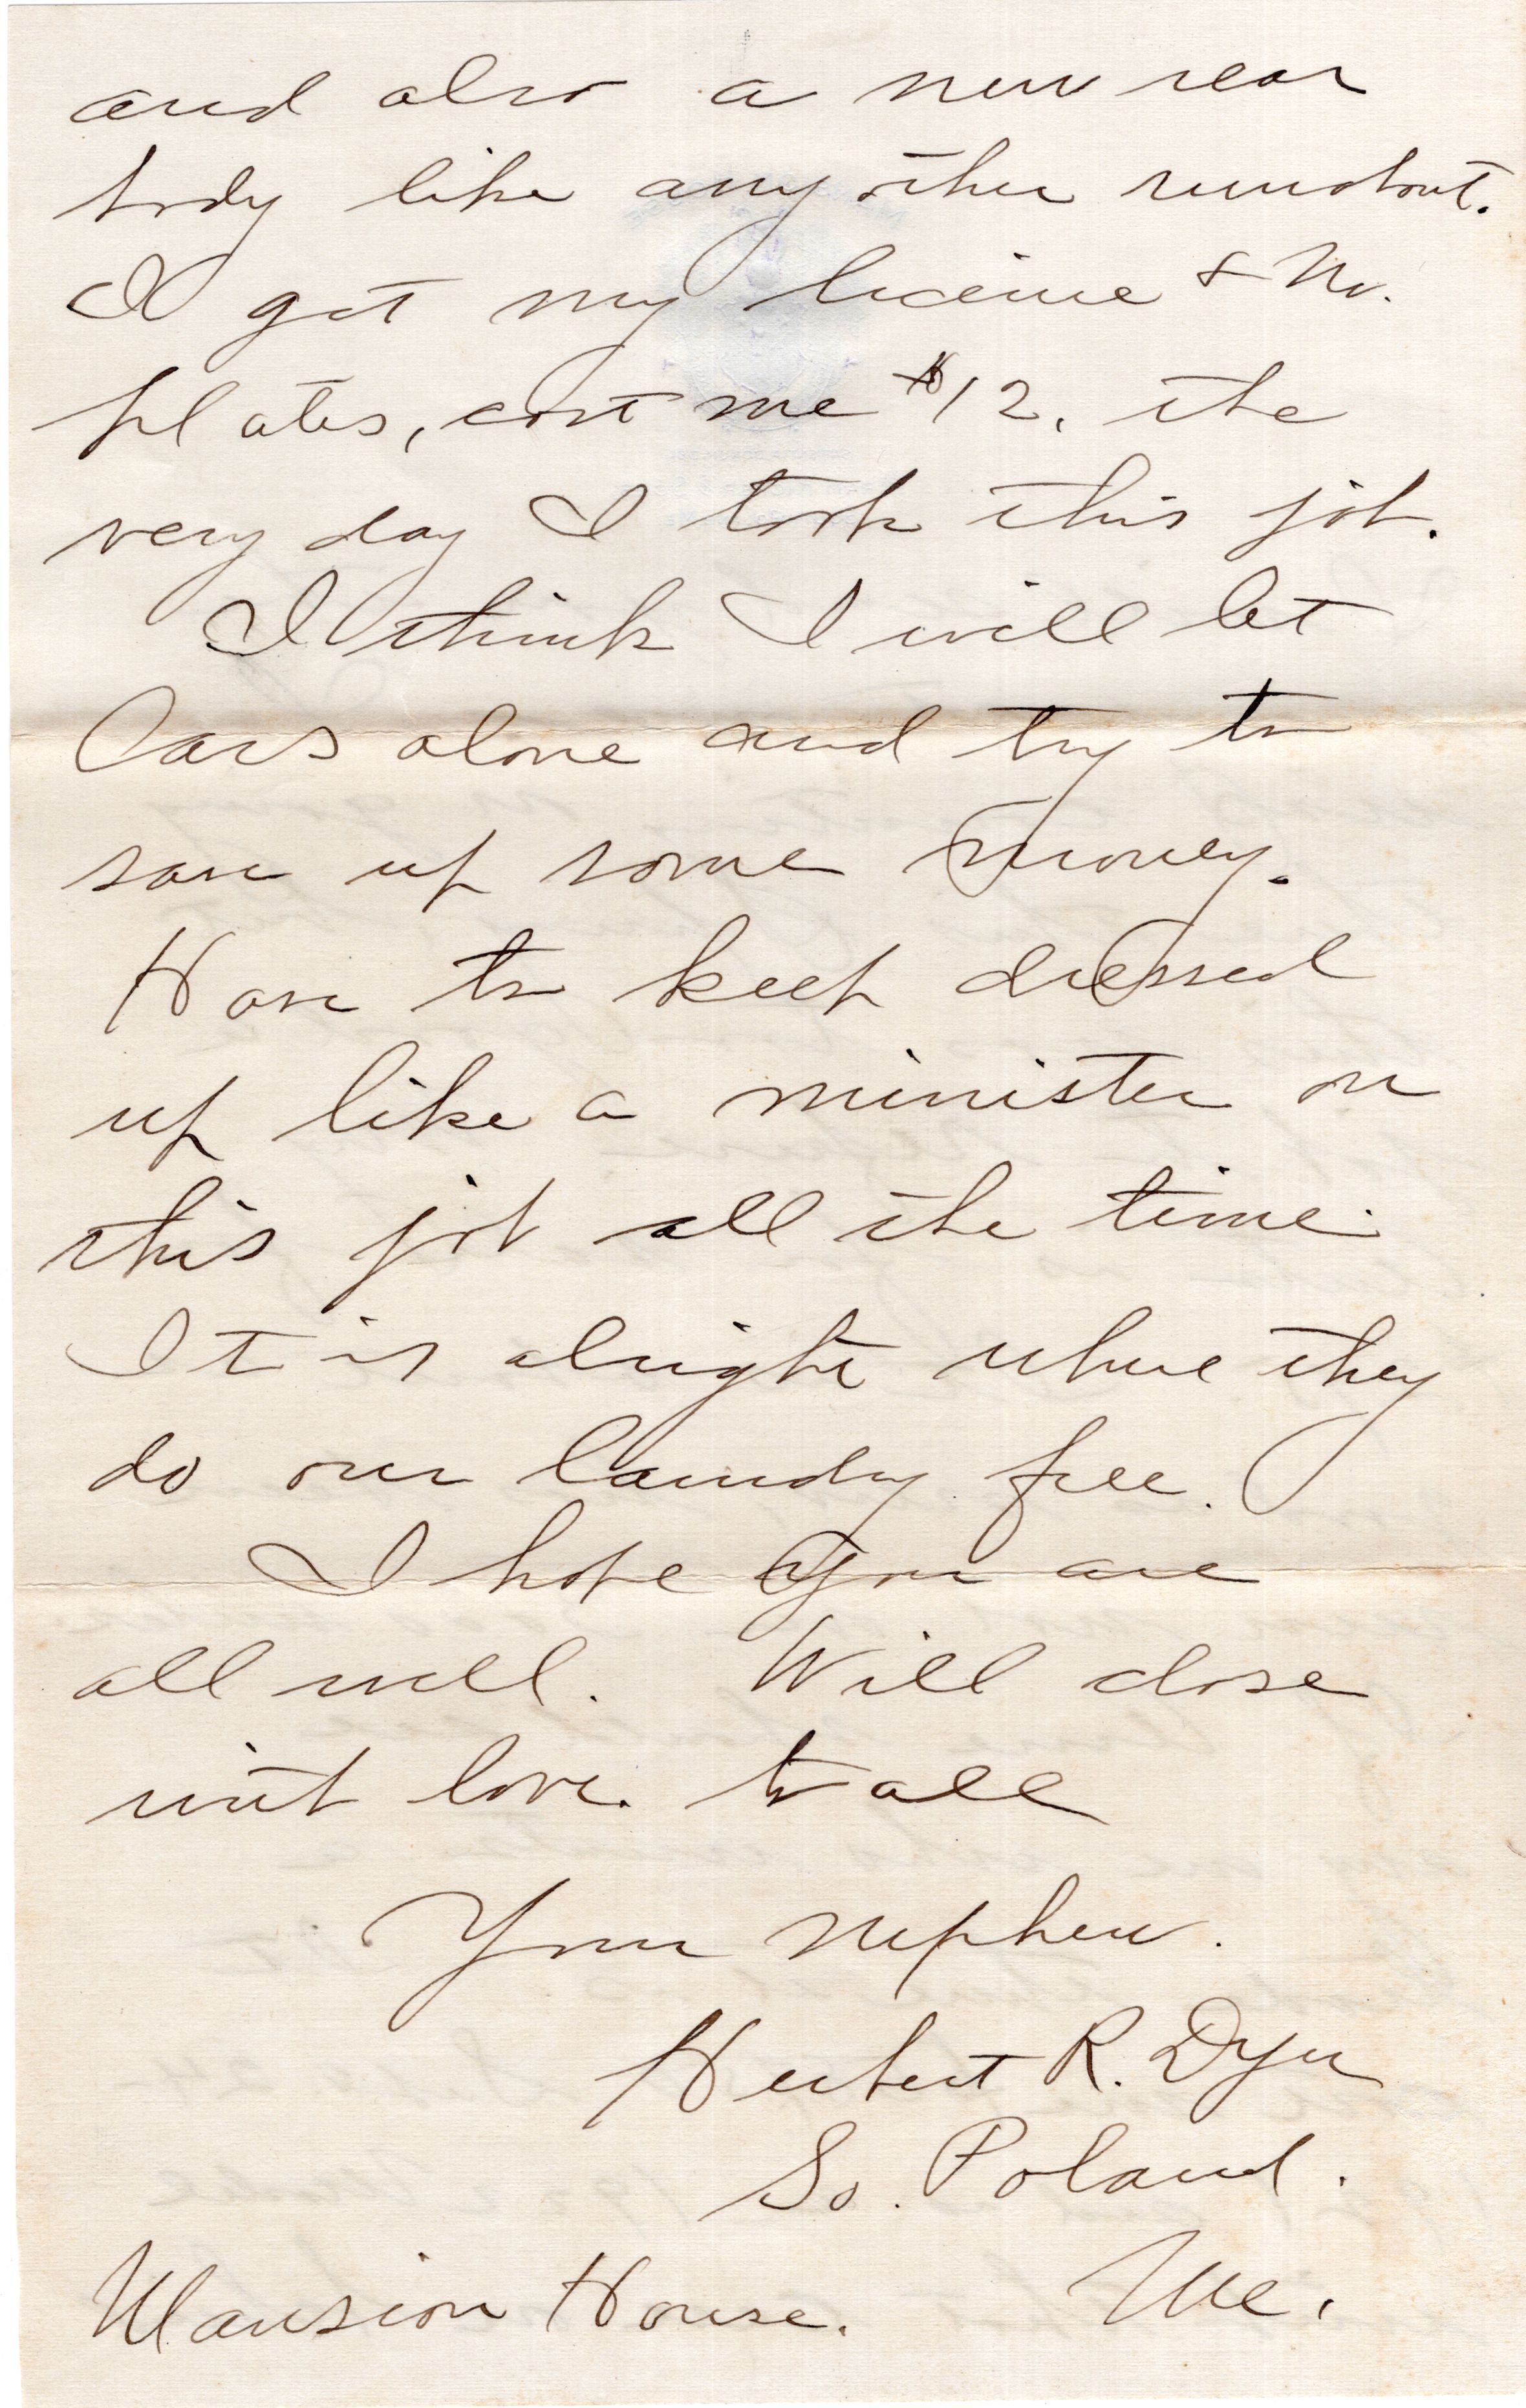 and also a new rear
body like any other runabout.
I got my license & No.
plates, cost me $12. the
very day I took this job.
I think I will let
Cars alone and try to
save up some money.
Have to keep dressed
up like a minister on
this job all the time.
It is alright where they
do our laundry free.
I hope you are
all well. Will close
wit love. to all
Your nephew.
Herbert R. Dyer
So. Poland.
Mansion House. Me.